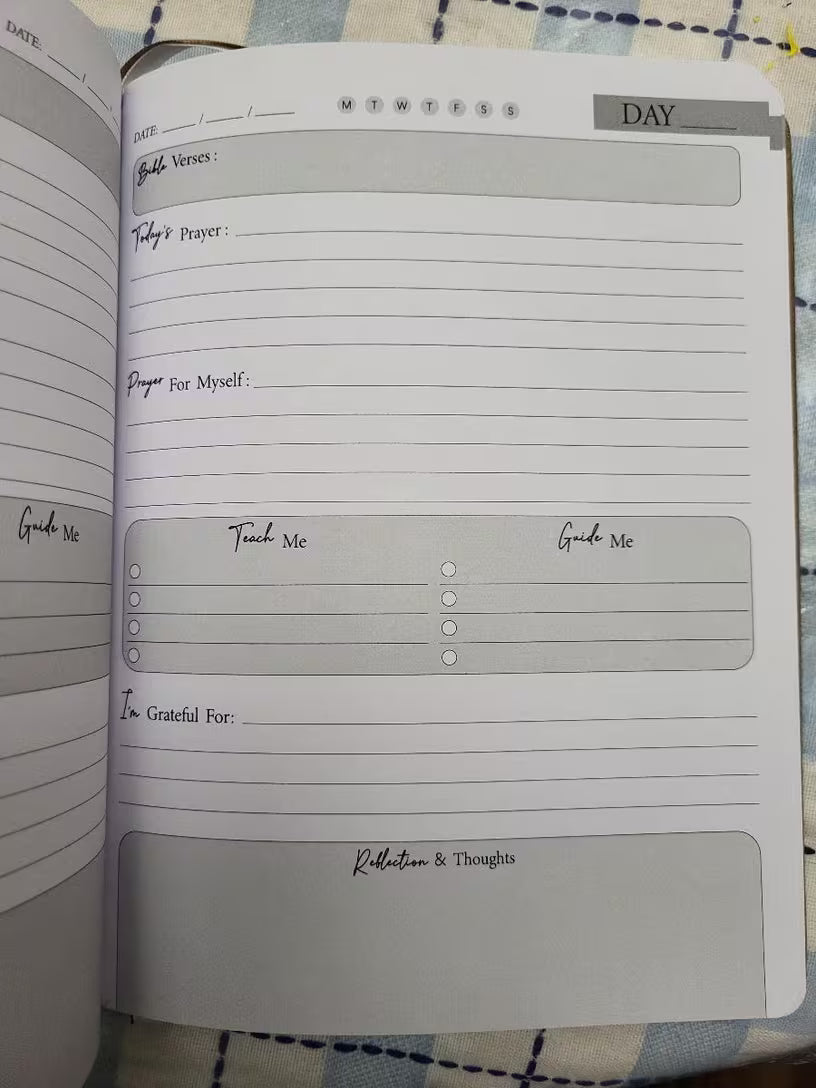 DATE: ___/___/
Guide Me
DATE: ____ /____ /_____
M T W T F S S
DAY ____
Bible Verses :
Today's Prayer :
Prayer For Myself :
Teach Me
Guide Me
I'm Grateful For:
Reflection & Thoughts